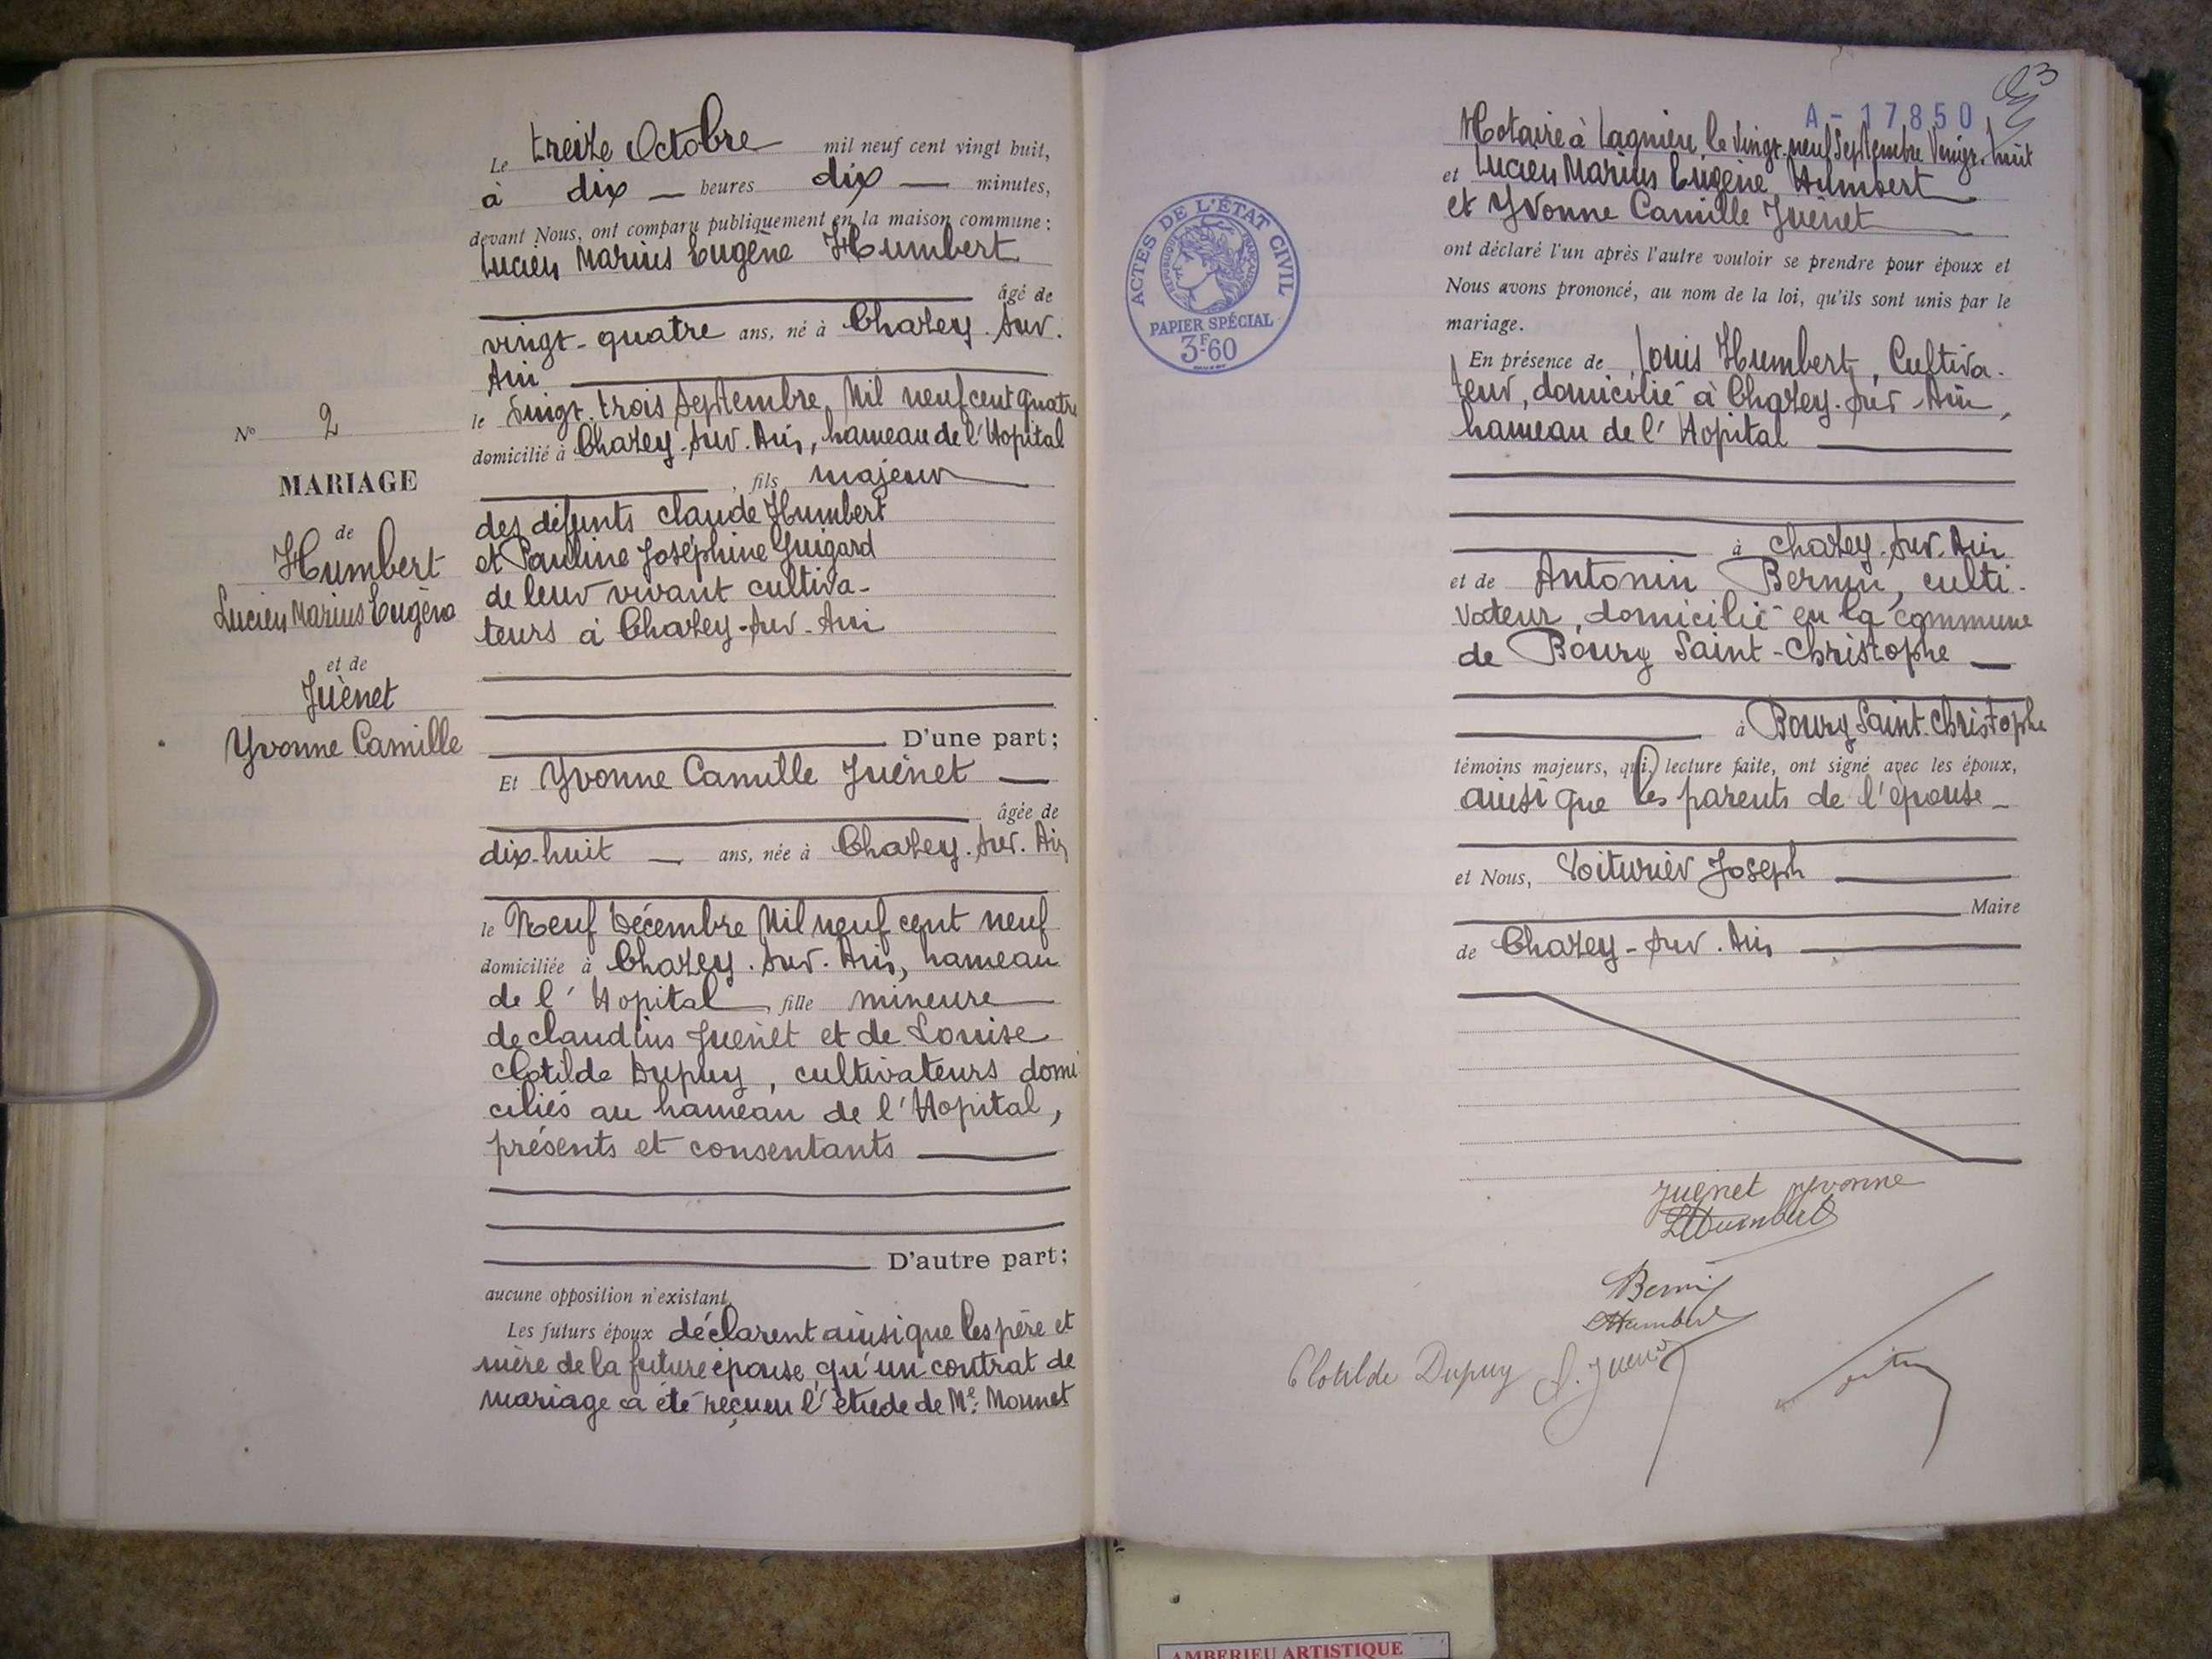 Le treize Octobre mil neuf cent vingt huit,
à dix heures dix minutes,
devant Nous, ont comparu publiquement en la maison commune :
Lucien Marius Eugène Humbert
âgé de
vingt-quatre ans, né à Chazey-sur-
Ain
le vingt-trois Septembre Mil neuf cent quatre
domicilié à Chazey-sur-Ain, hameau de l'Hopital
, fils majeur
des défunts Claude Humbert
et Pauline Joséphine Guigard
de leur vivant cultiva-
teurs à Chazey-sur-Ain
D'une part;
Et Yvonne Camille Juénet
âgée de
dix-huit ans, née à Chazey-sur-Ain
le Neuf Décembre Mil neuf cent neuf
domiciliée à Chazey-sur-Ain, hameau
de l'Hopital, fille mineure
de Claudius Juenet et de Louise
Clotilde Dupuy, cultivateurs domi
ciliés au hameau de l'Hopital,
présents et consentants
D'autre part;
aucune opposition n'existant,
Les futurs époux déclarent ainsi que les père et
mère de la future épouse, qu'un contrat de
mariage a été reçu en l'étude de Me. Monnet
No 2
MARIAGE
de
Humbert
Lucien Marius Eugène
et de
Juènet
Yvonne Camille
A - 17850
Notaire à Lagnieu, le vingt-neuf Septembre vingt-huit
et Lucien Marius Eugène Humbert
et Yvonne Camille Juénet
ont déclaré l'un après l'autre vouloir se prendre pour époux et
Nous avons prononcé, au nom de la loi, qu'ils sont unis par le
mariage.
En présence de Louis Humbert, Cultiva-
teur, domicilié à Chazey-sur-Ain,
hameau de l'Hopital
à Chazey-sur-Ain
et de Antonin Bernin, culti-
vateur, domicilié en la commune
de Bourg Saint-Christophe
à Bourg Saint-Christophe
témoins majeurs, qui, lecture faite, ont signé avec les époux,
ainsi que les parents de l'épouse
et Nous, Voiturier Joseph
Maire
de Chazey-sur-Ain
Juenet yvonne
LHumbert
Bernin
LHumbert
Clotilde Dupuy
C. Juenet
ACTES DE L'ÉTAT CIVIL
RÉPUBLIQUE FRANÇAISE
PAPIER SPÉCIAL
3F.60
AMBERIEU ARTISTIQUE